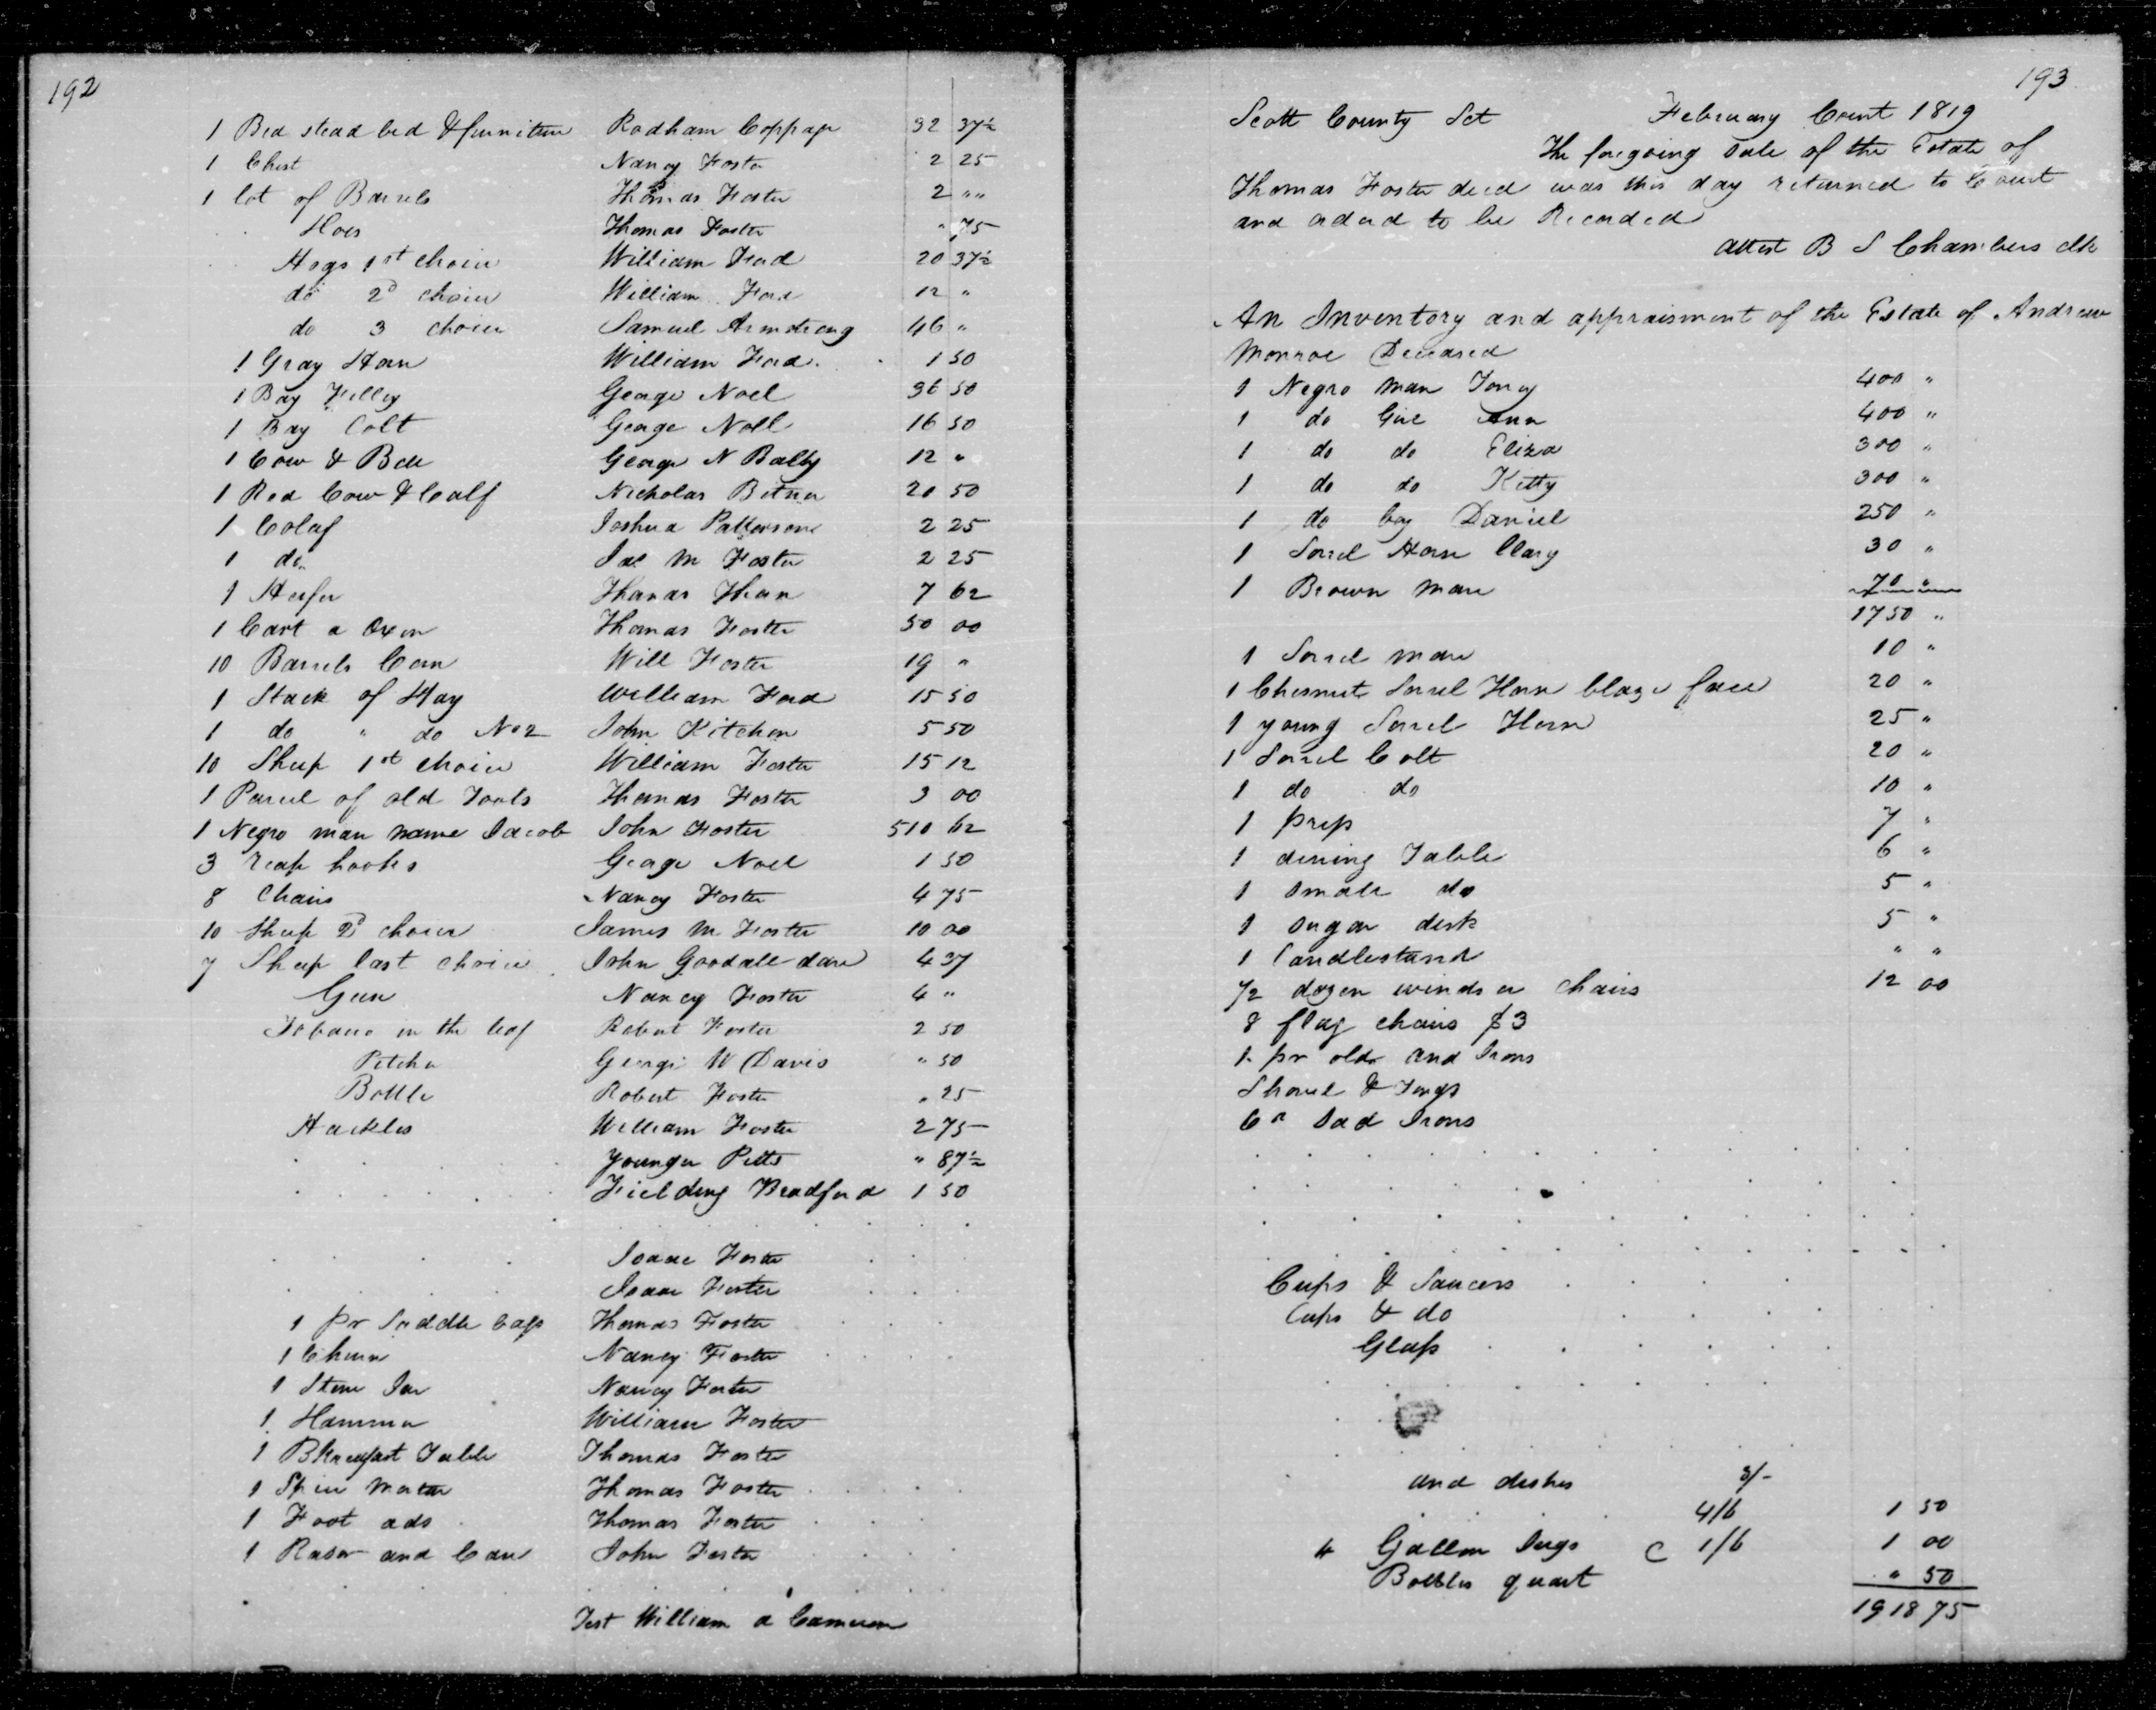 192
1 Bed stead bed & furniture Rodham Coppage 32 37½
1 Chest Nancy Foster 2 25
1 lot of Barrels Thomas Foster 2 ""
Hoes Thomas Foster " 75
Hogs 1st choice William Ford 20 37½
do 2d choice William Ford 12 "
do 3 choice Samuel Armstrong 46 "
1 Gray Horse William Ford 1 50
1 Bay Filley George Noel 36 50
1 Bay Colt George Noel 16 50
1 Cow & Bell George N 12 "
1 Red Cow & Calf Nicholas 20 50
1 Colaf Joshua Patterson 2 25
1 do Jas M Foster 2 25
1 Heifer Thomas 7 62
1 Cart a Oxen Thomas Foster 50 00
10 Barrels Corn Will Foster 19 "
1 Stack of Hay William Ford 15 50
1 do " do No 2 John Kitchen 5 50
10 Sheep 1st choice William Foster 15 12
1 Parcel of old Tools Thomas Foster 3 00
1 Negro man name Jacob John Foster 510 62
3 reap hooks George Noel 1 50
8 Chairs Nancy Foster 4 75
10 Sheep 2d choice James M Foster 10 00
7 Sheep last choice John Goodall 4 37
Gun Nancy Foster 4 "
Tobacco in the leaf Robert Foster 2 50
Pitcher George W Davis " 50
Bottle Robert Foster " 25
Hackles William Foster 2 75
Younger Pitts " 87½
Fielding Bradford 1 50
Isaac Foster
Isaac Foster
1 pr Saddle bags Thomas Foster
1 Churn Nancy Foster
1 Stone Jar Nancy Foster
1 Hammer William Foster
1 Bkreakfast Table Thomas Foster
1 Thomas Foster
1 Foot ads Thomas Foster
1 Rasor and Case John Foster
Test William a Cameron
193
Scott County Sct February Court 1819
The foregoing Sale of the Estate of
Thomas Foster decd was this day returned to Court
and orderd to be Recorded
attest B S Chambers clk
An Inventory and appraisment of the Estate of Andrew
Monroe Deceased
1 Negro man Toney 400 "
1 do Girl Ann 400 "
1 do do Eliza 300 "
1 do do Kitty 300 "
1 do boy Daniel 250 "
1 Sorrel Horse 30 "
1 Brown mare 70 "
1750 "
1 Sorrel mare 10 "
1 Chesnut Sorrel Horse blaze face 20 "
1 young Sorrel Horse 25 "
1 Sorrel Colt 20 "
1 do do 10 "
1 press 7 "
1 dining Table 6 "
1 small do 5 "
1 sugar desk 5 "
1 Candlestand " "
1/2 dozen windsor chairs 12 00
8 flag chairs $3
1 pr old and Irons
Shovel & Tongs
Sad Irons
Cups & Saucers
Cups & do
Glass
and dishes 3/-
4/6 1 50
4 Gallon Jugs C 1/6 1 00
Bottles quart " 50
1918 75